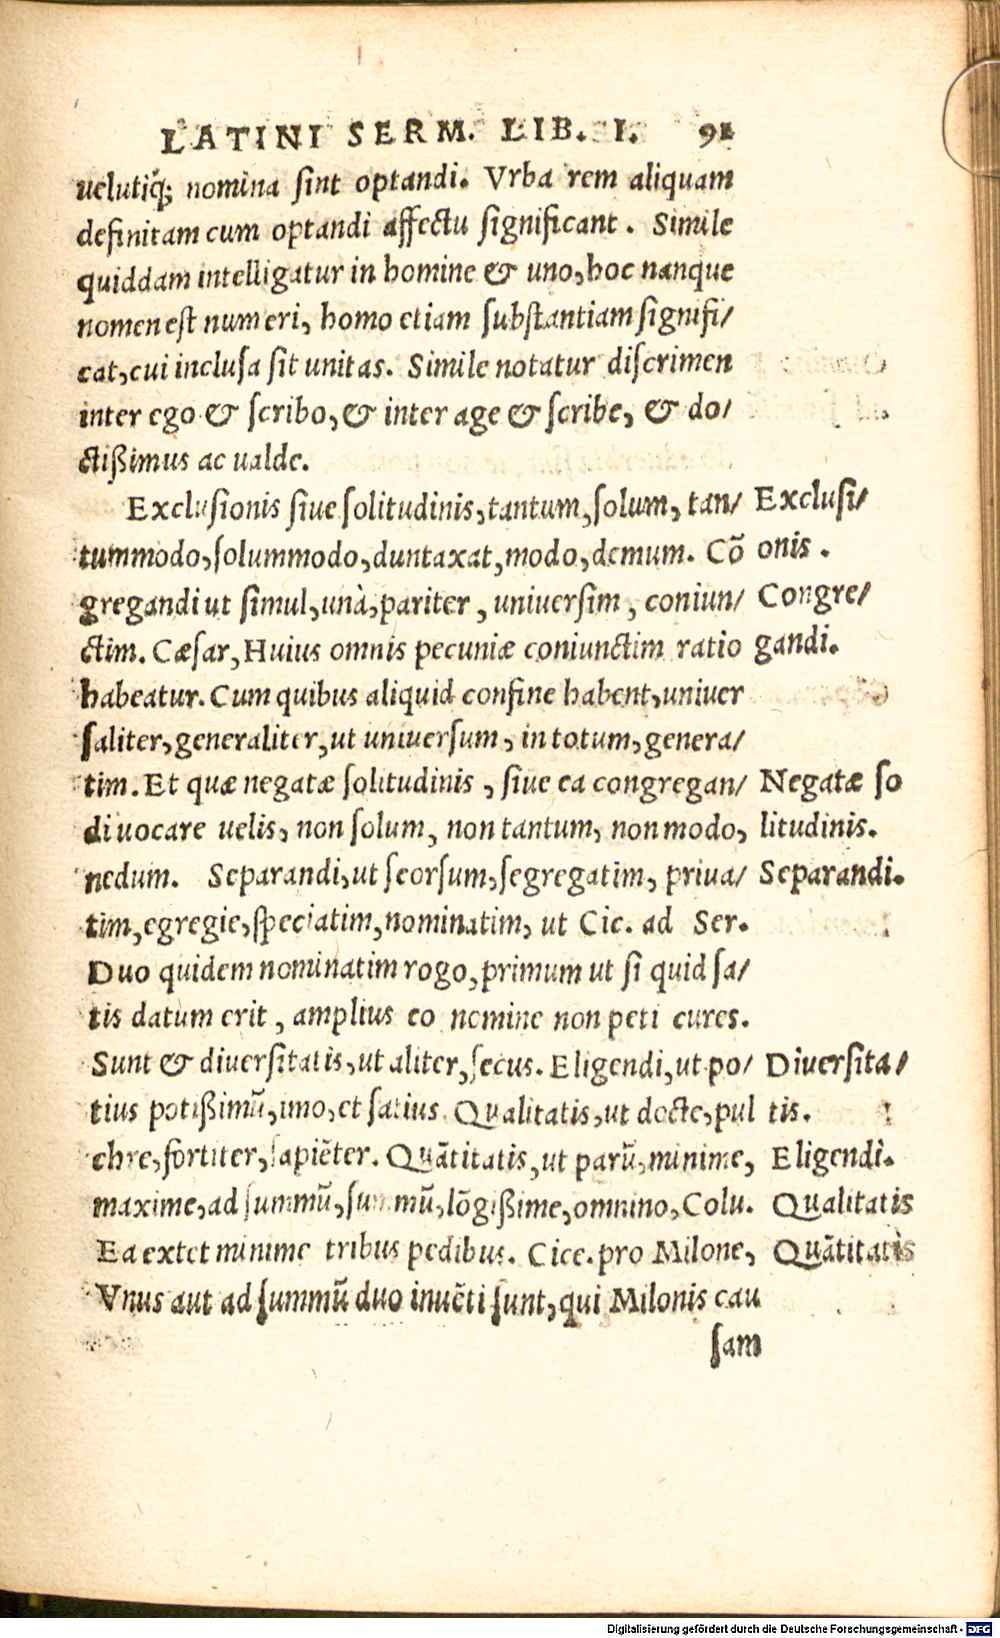 LATINI SERM. LIB. I. 91
uelutiq́; nomina ſint optandi. Vrba rem aliquam
definitam cum optandi affectu ſignificant. Simile
quiddam intelligatur in homine & uno, hoc nanque
nomen eſt numeri, homo etiam ſubſtantiam ſignifi/
cat, cui incluſa ſit unitas. Simile notatur diſcrimen
inter ego & ſcribo, & inter age & ſcribe, & do/
ctißimus ac ualde.
Excluſionis ſiue ſolitudinis, tantum, ſolum, tan/ Excluſi/
tummodo, ſolummodo, duntaxat, modo, demum. Cō onis.
gregandi ut ſimul, unà, pariter, uniuerſim, coniun/ Congre/
ctim. Cæſar, Huius omnis pecuniæ coniunctim ratio gandi.
habeatur. Cum quibus aliquid confine habent, uniuer
ſaliter, generaliter, ut uniuerſum, in totum, genera/
tim. Et quæ negatæ ſolitudinis, ſiue ea congregan/ Negatæ ſo
di uocare uelis, non ſolum, non tantum, non modo, litudinis.
nedum. Separandi, ut ſeorſum, ſegregatim, priua/ Separandi.
tim, egregie, ſpeciatim, nominatim, ut Cic. ad Ser.
Duo quidem nominatim rogo, primum ut ſi quid ſa/
tis datum erit, amplius eo nomine non peti cures.
Sunt & diuerſitatis, ut aliter, ſecus. Eligendi, ut po/ Diuerſita/
tius potißimū, imo, et ſatius. Qualitatis, ut docte, pul tis.
chre, fortiter, ſapiēter. Quātitatis, ut parū, minime, Eligendi.
maxime, ad ſummū, ſummū, lōgißime, omnino, Colu. Qualitatis
Ea extet minime tribus pedibus. Cice. pro Milone, Quātitatis
Vnus aut ad ſummū duo inuēti ſunt, qui Milonis cau
ſam
Digitalisierung gefördert durch die Deutsche Forschungsgemeinschaft - DFG